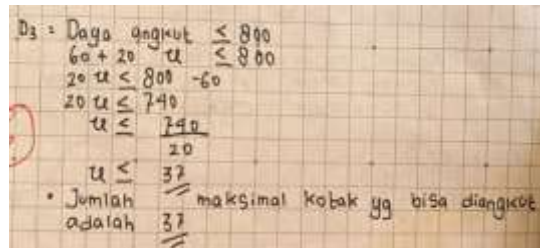 D3 : Daya angkut ≤ 800
60 + 20 x ≤ 800
20 x ≤ 800 - 60
20 x ≤ 740
x ≤ 740
20
x ≤ 37
• Jumlah maksimal kotak yg bisa diangkut
adalah 37